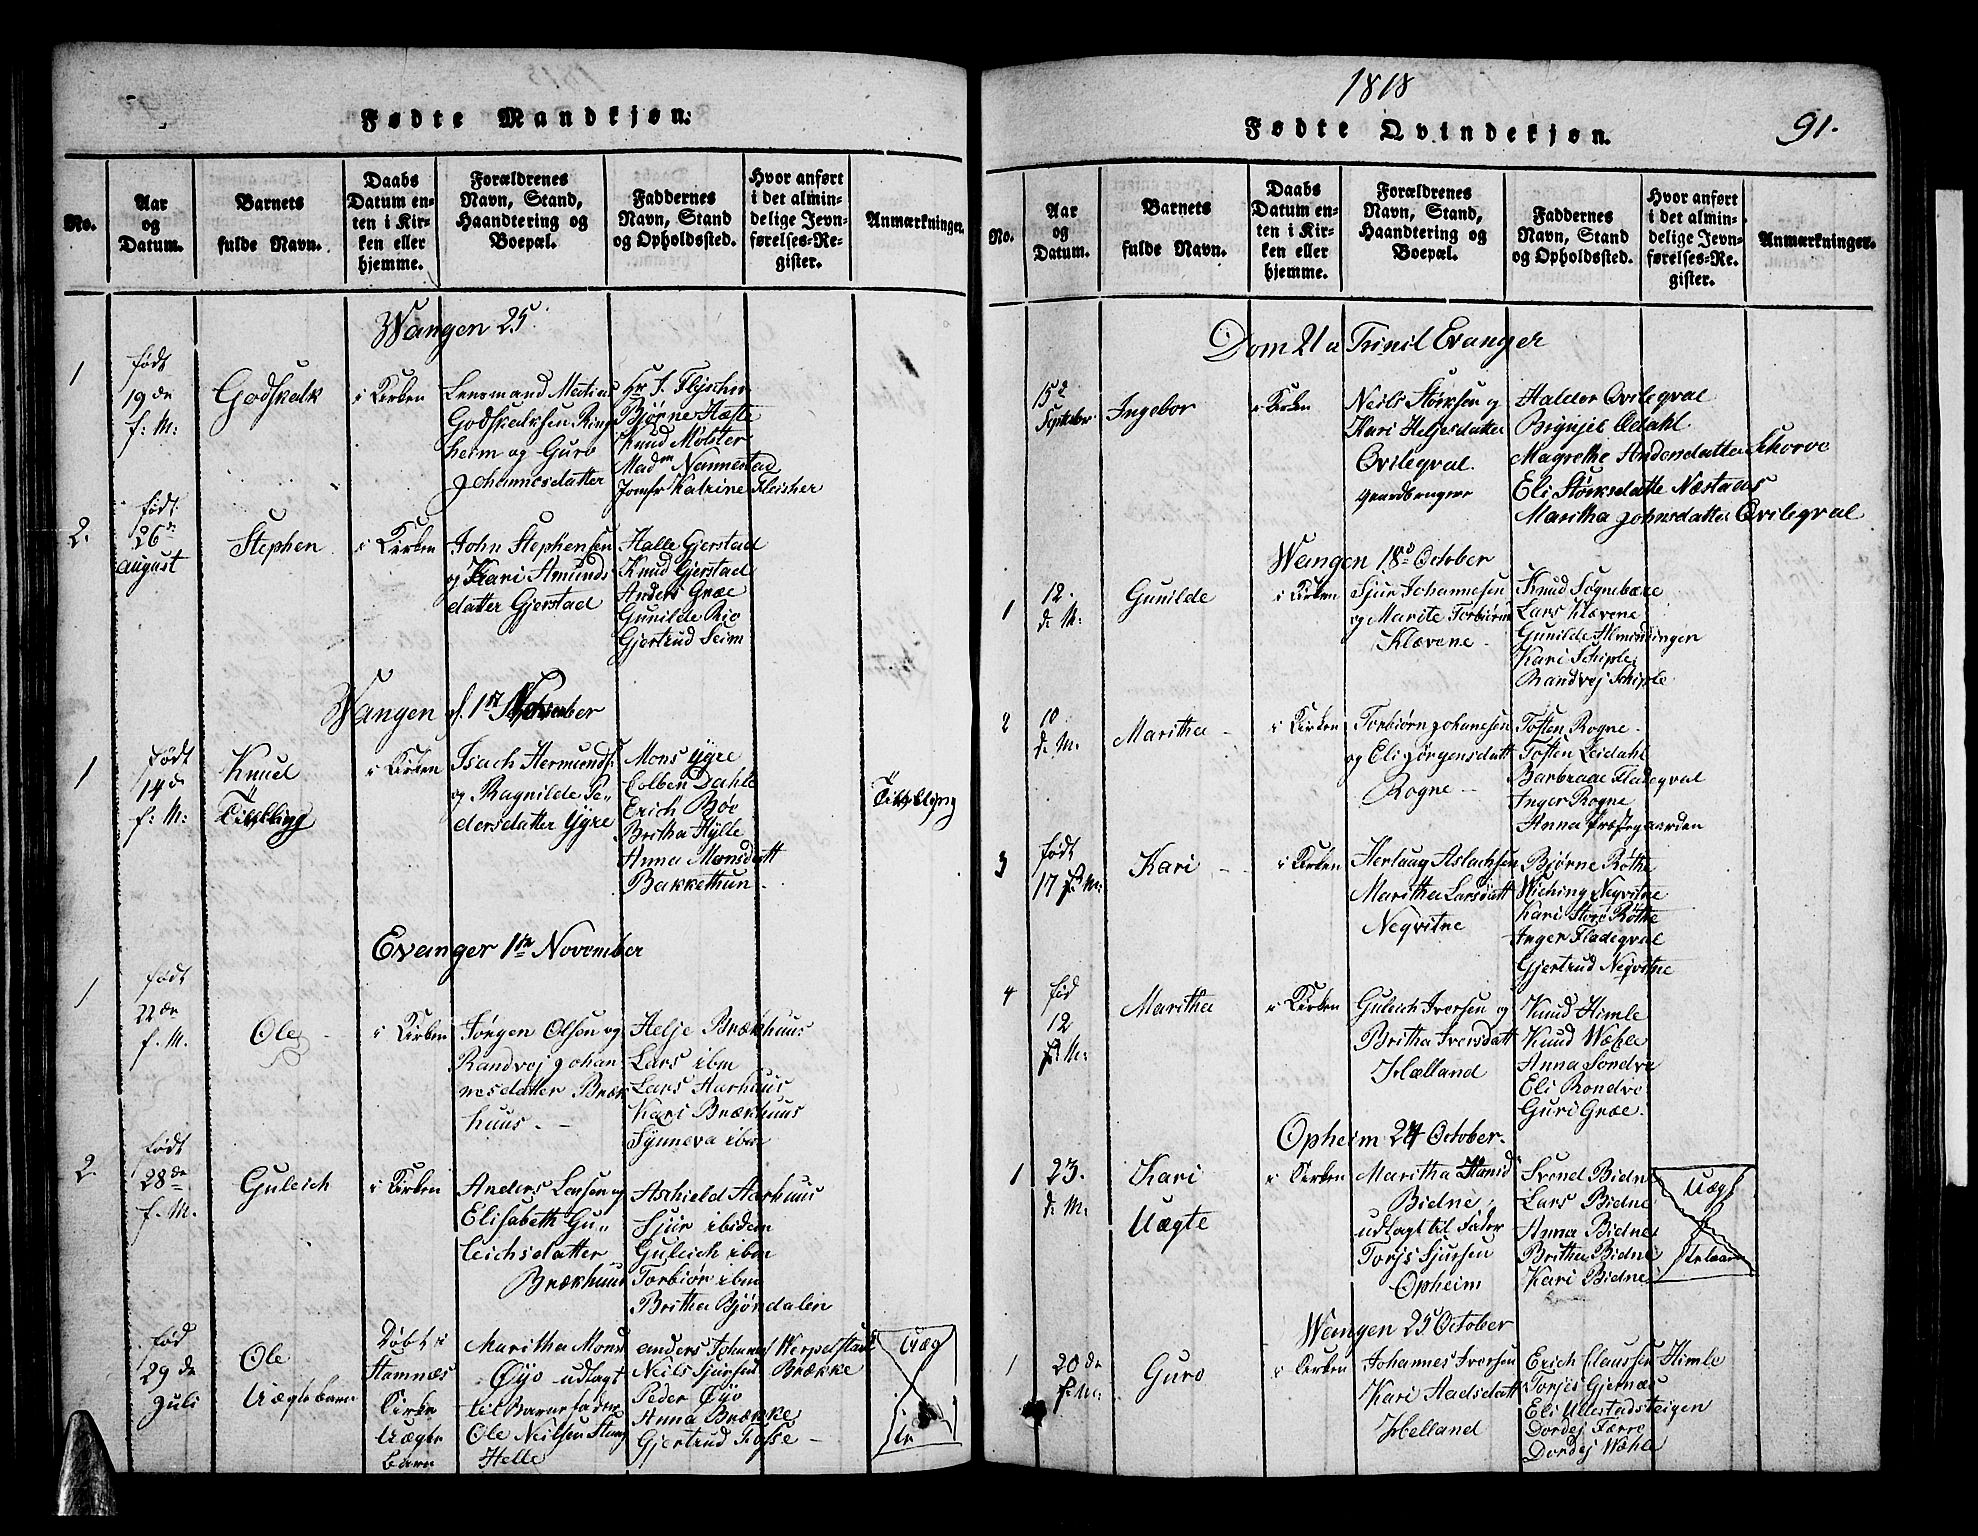 Fødte Mandkjøn.
No.
Aar
og
Datum.
Barnets
fulde Navn.
Daabs
Datum en-
ten i Kir-
ken eller
hjemme.
Forældrenes
Navn, Stand,
Haandtering og
Boepæl.
Faddernes
Navn, Stand
og Opholdssted.
Hvor anført
i det almin-
delige Jevn-
førelses-Re-
gister.
Anmærkninger.
Wangen 25
1
født
19 de
f: M:
Godskalk
i Kirken
Lensmand Mathias
Godskalksen Ring
heim og Guro
Johannesdatter
Hr J. Fleischer
Bjørne Hæfte
Knud Mølster
Madm Nannestad
Jomfr Katrine Fleischer
2.
født
26de
august
Stephen
i Kirken
John Stephensen
og Kari Amunds
datter Gjerstad
Halle Gjerstad
Knud Gjerstad
Anders Græe
Gunilde Rio
Gjertrud Seim
Wangen d. 1ste November
1
født
14 de
f: M:
Knud
Tvilling
i Kirken
Isach Hermunds
og Ragnilde Pe-
dersdatter Ygre
Mons Ygre
Colben Dahle
Erich Bøe
Britha Hylle
Anna Monsdatt
Bakkethun
Tvilling
Evanger 1te November
1
født
22de
f. M.
Ole
i Kirken
Jørgen Olson og
Randvej Johan
nesdatter Bræk
huus.
Helje Brækhuus
Lars ibm
Lars Aarhuus
Kari Brækhuus
Synneva ibm
2.
født
28de
f. M.
Guleich
i Kirken
Anders Larsen og
Elisabeth Gu-
leichsdatter
Brækhuus
Aschield Aarhuus
Sjur ibidem
Guleich ibm
Torbiør ibm
Britha Bjøndalen
fød
29 de
Juli
Ole
Uægte barn
Døbt i
Stamnæs
Kirke
Uægte
barn
Maritha Mons
Øyo udlagt
til Barnefader
Ole Neilsen
Helle
anders Johannes Herpelstad
Neils Sjursen Brække
Peder Øyo
Anna Brække
Gjertrud Fosse
Uæg
te
1818
Fødte Qvindekjøn.
91.
No.
Aar
og
Datum.
Barnets
fulde Navn.
Daabs
Datum en-
ten i Kir-
ken eller
hjemme.
Forældrenes
Navn, Stand,
Haandtering og
Boepæl.
Faddernes
Navn, Stand
og Opholdssted.
Hvor anført
i det almin-
delige Jevn-
førelses-Re-
gister.
Anmærkninger.
Dom 21 a Trinit Evanger
15de
September
Ingebor
i Kirken
Neils Størksen og
Kari Heljesdatter
Qvileqval
gaardbrugere
Haldor Qvileqval
Brynjel Ødahl
Magrethe Andersdatter Skorve
Eli Størksdatte Næstaas
Maritha Johnsdatter Qvileqval
Wangen 18de October
1
12.
d. M:
Gunilde
i Kirken
Sjur Johannesen
og Marite Torbiørn
Klævene
Knud Søgnebære
Lars Klævene
Gunilde Almendingen
Kari Schiple
Randvej Schiple
2
10
d. M.
Maritha
i Kirken
Torbiørn Johanesen
og Eli Jørgensdatt
Rogne
Tosten Rogne
Tosten Leidahl
Barbraae Fladeqval
Inger Rogne
Anna Præstegaarden
3
født
17 f: M:
Kari
i Kirken
Herlaug Aslachsen
Maritha Larsdatt
Neqvitne
Bjørne Røthe
Wiching Neqvitne
Kari Store Røthe
Inger Fladeqval
Gjertrud Neqvitne
4
fød
12
f: M:
Maritha
i Kirken
Guleich Iversen og
Britha Iversdatt
Hælland
Knud Himle
Knud Wæhle
Anna Sondve
Eli Rondve
Guri Græe
Opheim 24 October
1
23.
d. M:
Kari
Uægte
i Kirken
Maritha
Bidne
udlagt til fader
Torjs Sjursen
Opheim
Svend Bidne
Lars Bidne
Anna Bidne
Britha Bidne
Kari Bidne
Uæg
te barn
Wangen 25 October
1
20 de
f: M:
Guro
i Kirken
Johannes Iversen
Kari Aadsdatt
Helland
Erich Claussen Himle
Torjes Gjernæs
Eli Ullestadsteigen
Dordej Færre
Dordej Wæhle